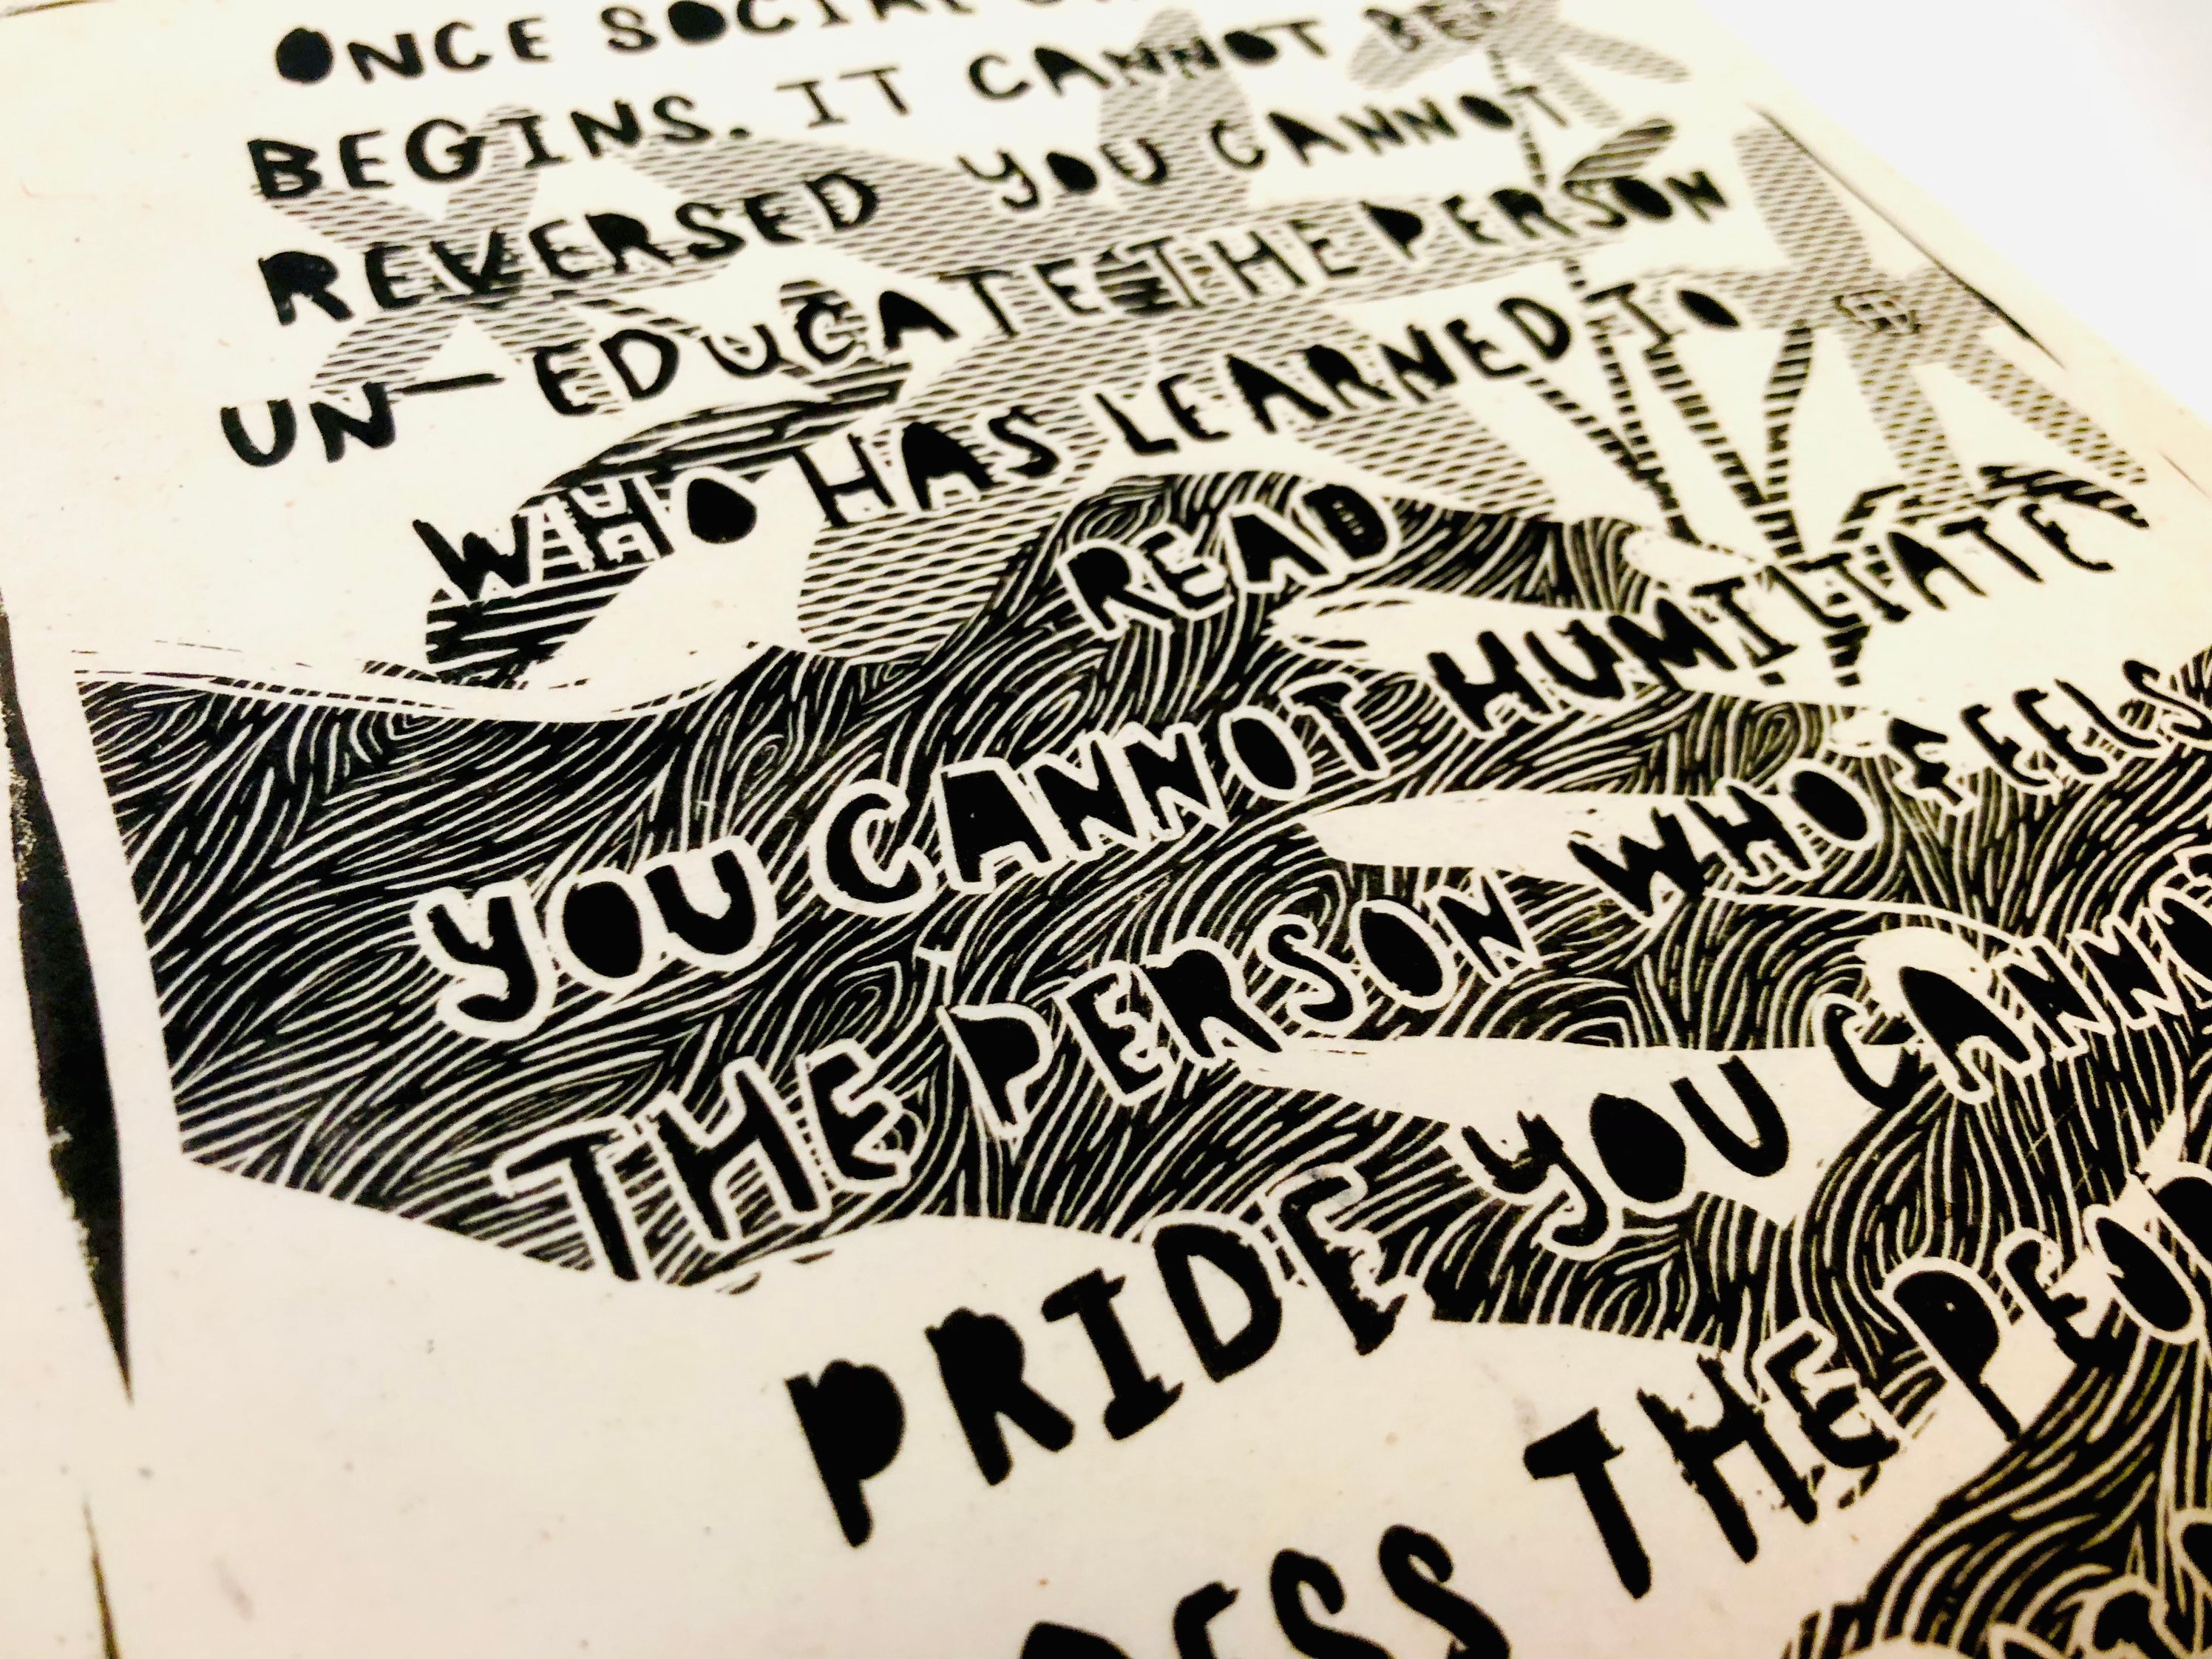 ONCE SOCIAL
BEGINS. IT CANNOT BE
REVERSED YOU CANNOT
UN-EDUCATE THE PERSON
WHO HAS LEARNED TO
READ
YOU CANNOT HUMILIATE
THE PERSON WHO FEELS
PRIDE YOU CANNO
THE PEOP